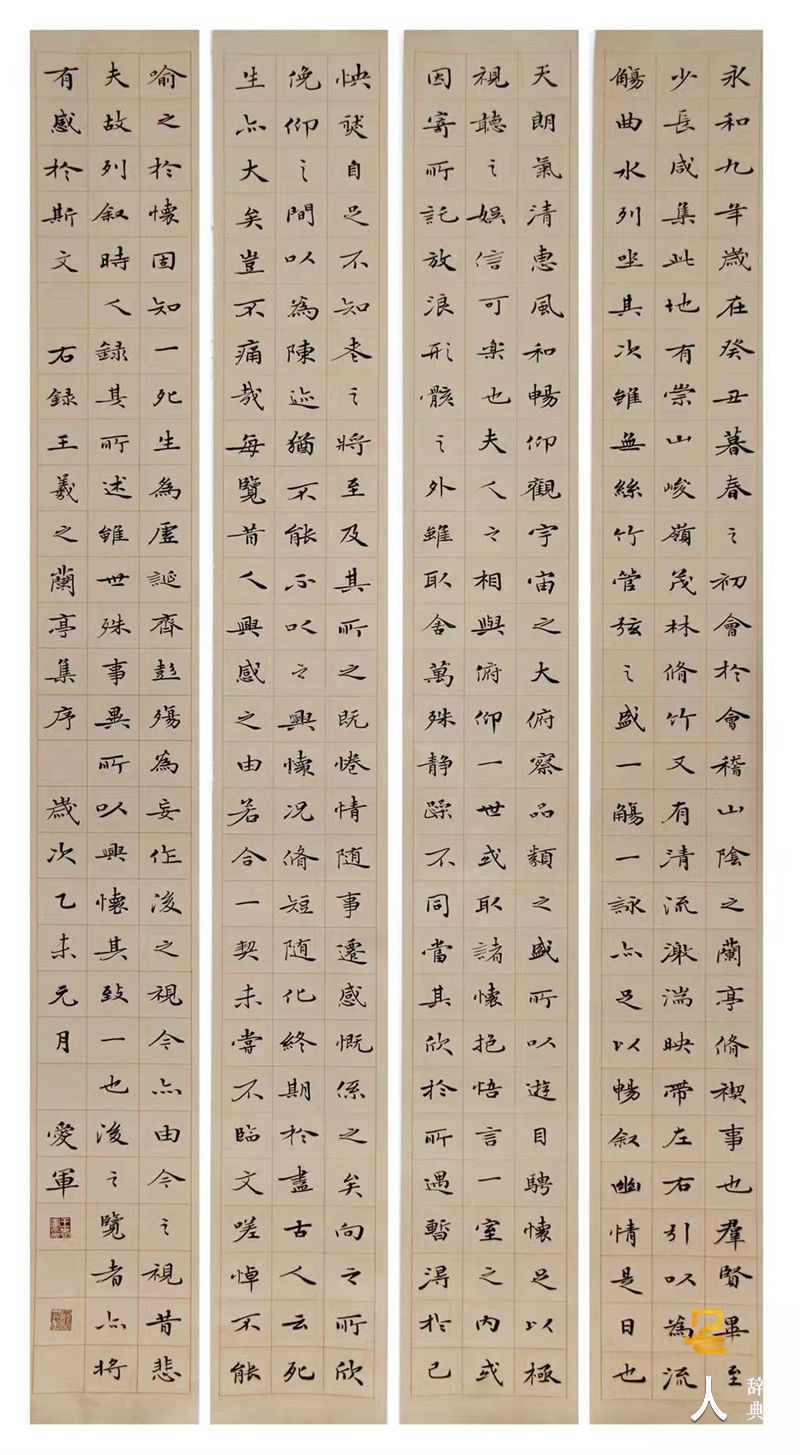 永和九年歲在癸丑暮春之初會於會稽山陰之蘭亭脩禊事也羣賢畢至
少長咸集此地有崇山峻嶺茂林脩竹又有清流激湍映帶左右引以為流
觴曲水列坐其次雖無絲竹管弦之盛一觴一詠亦足以暢叙幽情是日也
天朗氣清惠風和暢仰觀宇宙之大俯察品類之盛所以遊目騁懷足以極
視聽之娛信可楽也夫人之相與俯仰一世或取諸懷抱悟言一室之內或
因寄所託放浪形骸之外雖取舍萬殊静躁不同當其欣於所遇暫得於己
怏然自足不知老之將至及其所之既惓情随事遷感慨係之矣向之所欣
俛仰之間以為陳迹猶不能不以之興懷况脩短随化終期於盡古人云死
生亦大矣豈不痛哉每覽昔人興感之由若合一契未嘗不臨文嗟悼不能
喻之於懷固知一死生為虛誕齊彭殤為妄作後之視今亦由今之視昔悲
夫故列叙時人録其所述雖世殊事異所以興懷其致一也後之覽者亦將
有感於斯文 右録王羲之蘭亭集序 歲次乙未元月 愛軍
人
辞典